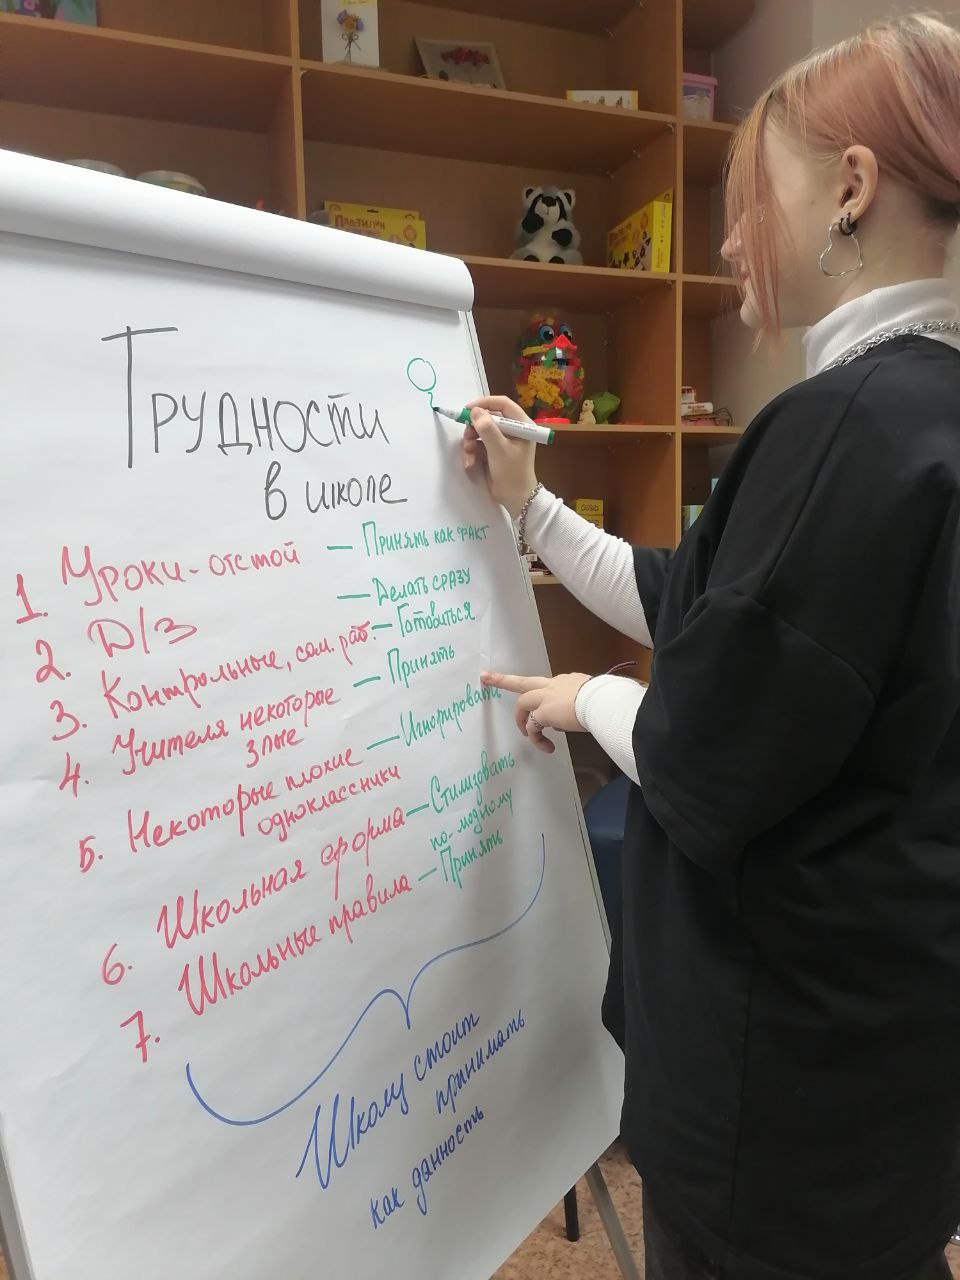 Трудности
в школе
1. Уроки-отстой — Принять как факт
2. Д/з — Делать сразу
3. Контрольные, сам. раб. — Готовиться
4. Учителя некоторые — Принять
злые
5. Некоторые плохие — Игнорировать
одноклассники
6. Школьная форма — Стилизовать
по-модному
7. Школьные правила — Принять
Школу стоит
принимать
как данность
Пластилин